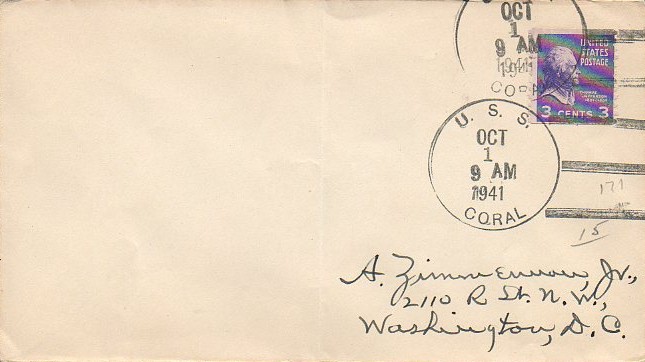 OCT
1
9 AM
1941
CORAL
UNITED
STATES
POSTAGE
THOMAS
JEFFERSON
3 CENTS 3
U. S. S.
OCT
1
9 AM
1941
CORAL
171
15
A. Zimmerman, Jr.,
2110 R St. N. W.,
Washington, D. C.